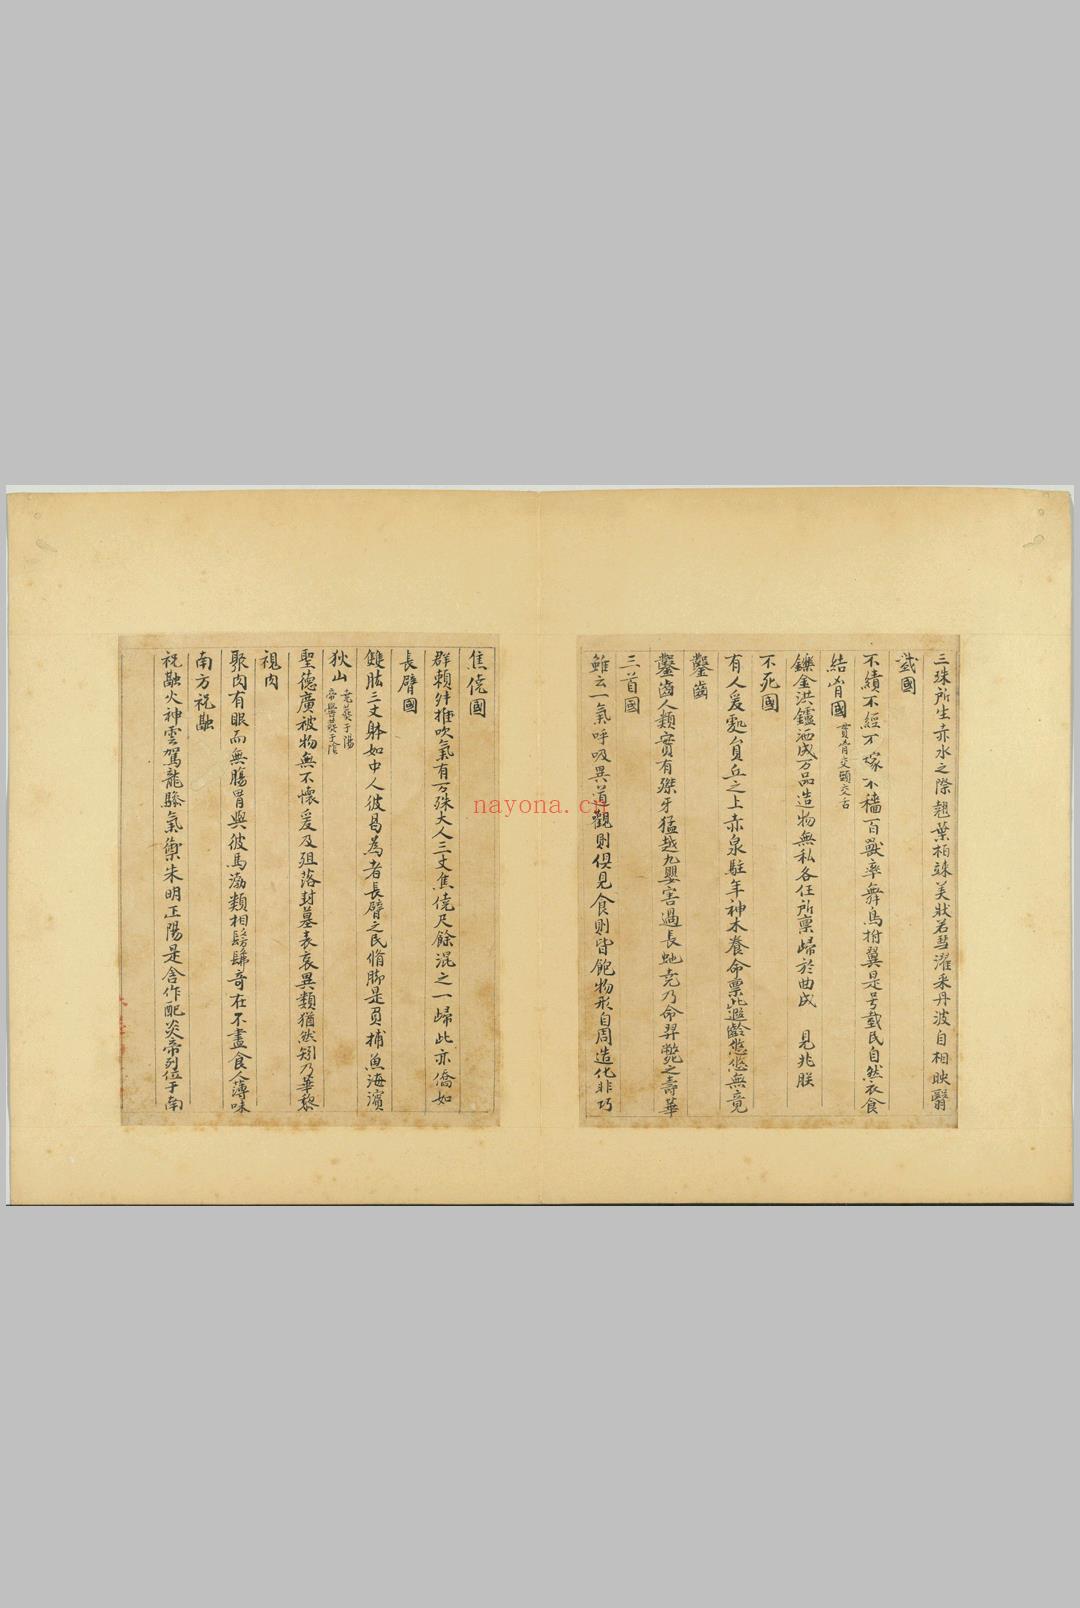 三珠所生赤水之際翹葉柏竦美狀若彗濯采丹波自相映翳
臷國
不績不經不稼不穡百獸率舞鳥拊翼是号臷民自然衣食
結胷國 貫胷交頸交舌
鑠金洪鑪洒成万品造物無私各任所禀歸於曲成 見兆朕
不死國
有人爰處員丘之上赤泉駐年神木養命禀此遐齡悠悠無竟
鑿齒
鑿齒人類實有傑牙猛越九嬰害過長虵尭乃命羿斃之壽華
三首國
雖云一氣呼吸異道觀則俱見食則皆飽物形自周造化非巧
焦僥國
群籟舛推吹氣有万殊大人三丈焦僥尺餘混之一歸此亦僑如
長臂國
雙肱三丈躰如中人彼曷為者長臂之民脩脚是負捕魚海濱
狄山 尭葬于陽 帝嚳葬于陰
聖德廣被物無不懷爰及殂落封墓表哀異類猶然矧乃華黎
視肉
聚肉有眼而無膓胃與彼馬勃類相髣髴竒在不盡食人薄味
南方祝融
祝融火神雲駕龍驂氣禦朱明正陽是含作配炎帝列位于南
nayona.cn